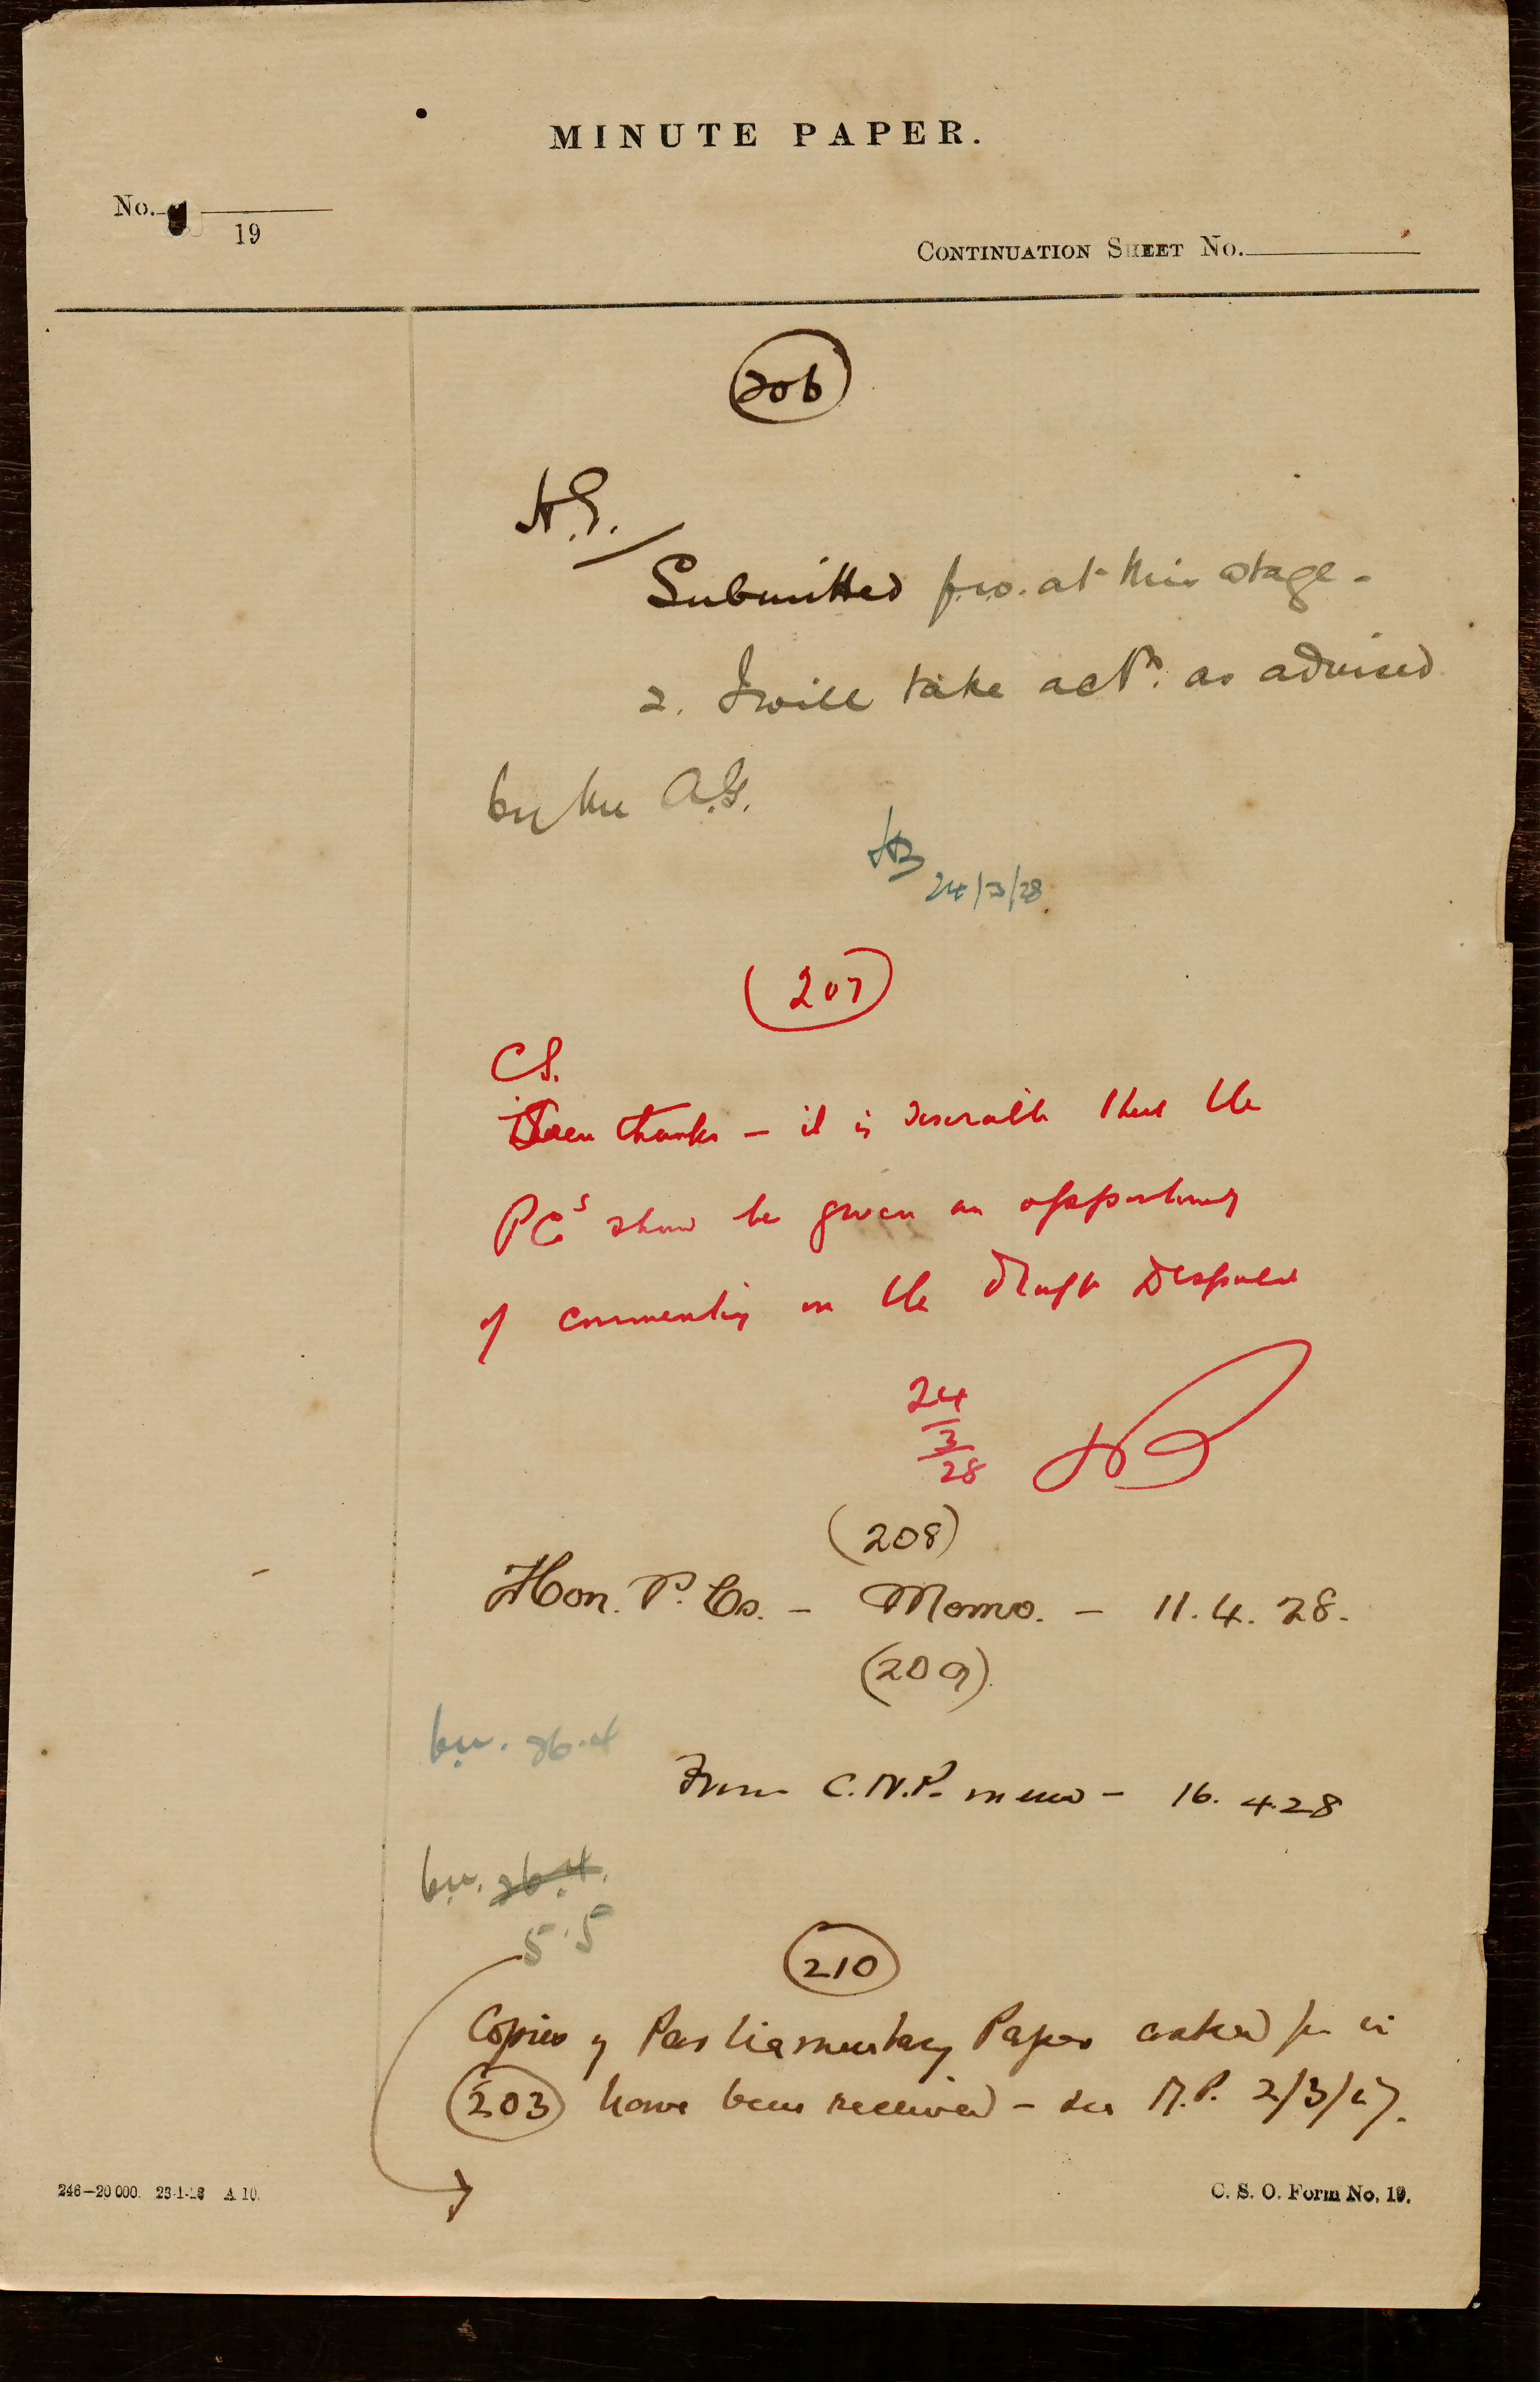 MINUTE PAPER.
No.
19
CONTINUATION SHEET No.
206
H.E.
Submitted f.w. at this stage.
2. I will take actn. as advised
by the A.G.
24/3/28.
(207)
C.S.
Seen thanks – it is desirable that the
PCs shd be given an opportunity
of commenting on the draft Despatch
24
3
28
(208)
Hon. P. Cs. – Memo. – 11.4.28.
(209).
b.u. 26.4
From C.N.P. memo – 16.4.28
b.u. 26.4.
5.5
210
Copies of Parliamentary Paper asked for in
203 have been received – see M.P. 2/3/27.
246–20 000. A 10.
C. S. O. Form No. 19.